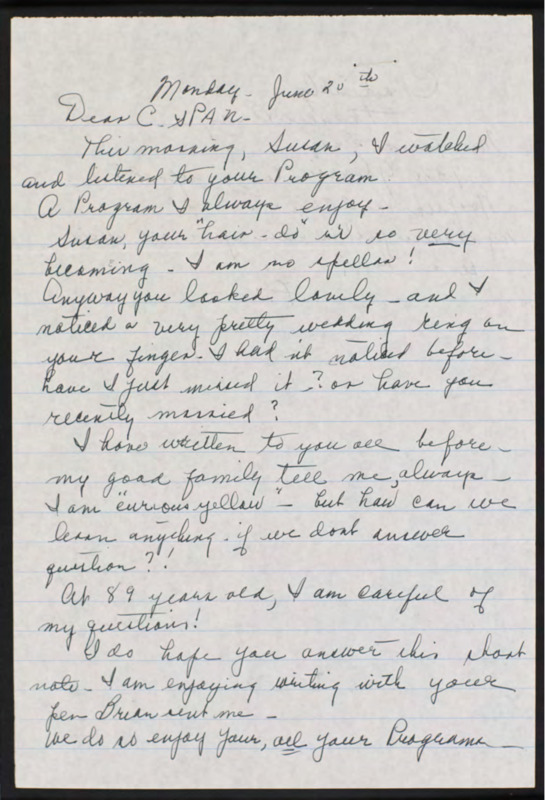 Monday - June 20th
Dear C. SPAN -
This morning, Susan, I watched
and listened to your Program.
A Program I always enjoy -
Susan, your "hair-do" is so very
becoming - I am no speller!
Anyway you looked lovely - and I
noticed a very pretty wedding ring on
your finger - I had nt noticed before -
have I just missed it? or have you
recently married?
I have written to you all before -
my good family tell me, always -
I am "curious-yellow" - but how can we
learn anything - if we dont answer
question?!
At 89 years old, I am careful of
my questions!
I do hope you answer this short
note - I am enjoying writing with your
pen Brian sent me -
We do so enjoy your, all your Programs -